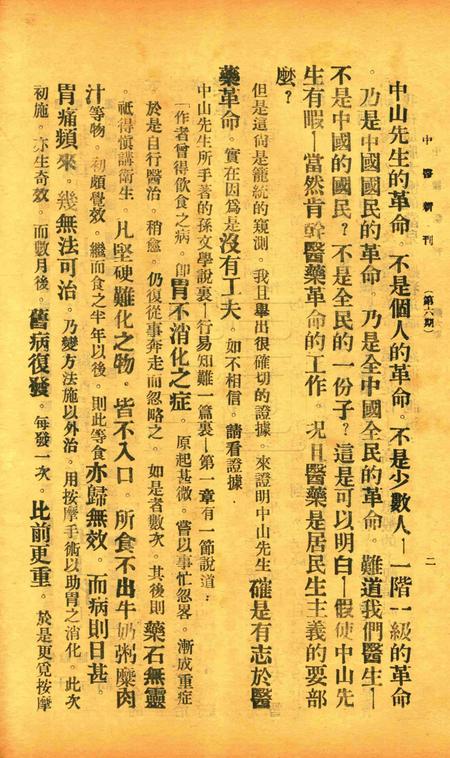 中醫新刊　（第六期）　二
中山先生的革命。不是個人的革命。不是少數人—一階一級的革命
。乃是中國國民的革命。乃是全中國全民的革命。難道我們醫生—
不是中國的國民？不是全民的一份子？這是可以明白—假使中山先
生有暇—當然肯幹醫藥革命的工作。况且醫藥是居民生主義的要部
麽？
但是這尙是籠統的窺測。我且舉出很確切的證據。來證明中山先生確是有志於醫
藥革命。實在因爲是沒有工夫。如不相信。請看證據．
中山先生所手著的孫文學說裏—行易知難一篇裏—第一章有一節說道：
「作者曾得飲食之病。卽胃不消化之症。原起甚微。嘗以事忙忽畧。漸成重症
於是自行醫治。稍愈。仍復從事奔走而忽略之。如是者數次。其後則藥石無靈
。祇得慎講衛生。凡堅硬難化之物。皆不入口。所食不出牛奶粥糜肉
汁等物。初頗覺效。繼而食之半年以後。則此等食亦歸無效。而病則日甚。
胃痛頻來。幾無法可治。乃變方法施以外治。用按摩手術以助胃之消化。此次
初施。亦生奇效。而數月後。舊病復發。每發一次。比前更重。於是更覓按摩